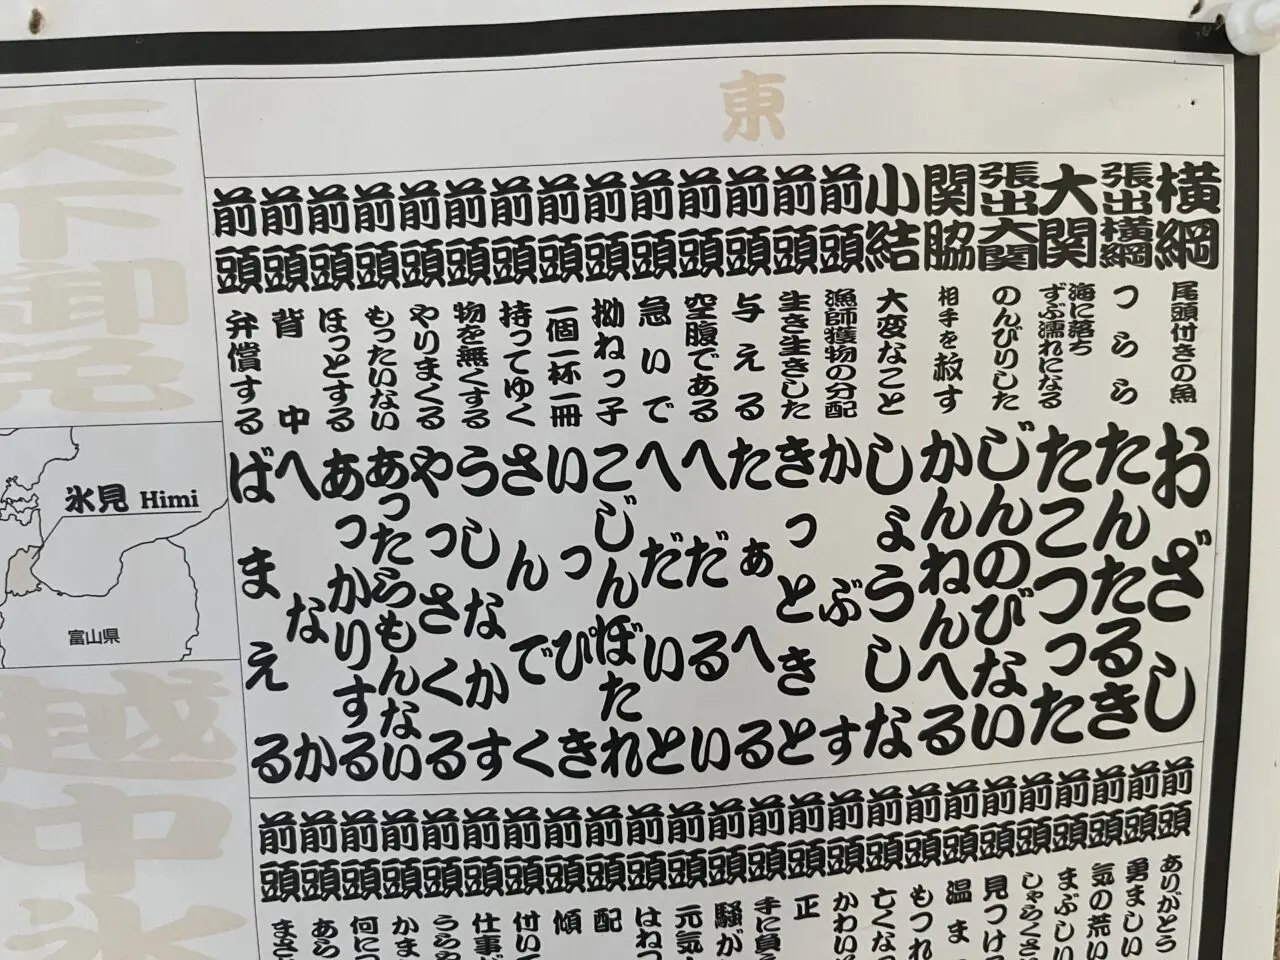 東
横綱 尾頭付きの魚 おざし
張出横綱 つらら たんたるき
大関 海に落ちずぶ濡れになる たこつった
張出大関 のんびりした じんのびない
関脇 相手を赦す かんねんへる
小結 大変なこと しょうしな
前頭 漁師獲物の分配 かぶす
前頭 生き生きした きっときと
前頭 与える たぁへる
前頭 空腹である へだるい
前頭 急いで へだいと
前頭 拗ねっ子 こじんぼたれ
前頭 一個一杯一冊 いっぴき
前頭 持ってゆく さんでく
前頭 物を無くする うしなかす
前頭 やりまくる やっさくる
前頭 もったいない あったらもんない
前頭 ほっとする あっかりする
前頭 背中 へなか
前頭 弁償する ばまえる
前頭 ありがとう
前頭 勇ましい
前頭 気の荒い
前頭 まぶしい
前頭 しゃらくさ
前頭 見つけ
前頭 温ま
前頭 もつれ
前頭 亡くな
前頭 かわい
前頭 正
前頭 手に負
前頭 騒が
前頭 元気
前頭 はねつ
前頭 配
前頭 傾
前頭 付いて
前頭 仕事が
前頭 うらや
前頭 かま
前頭 何につ
前頭 あら
前頭 まさ
天下御免
氷見 Himi
富山県
越中氷